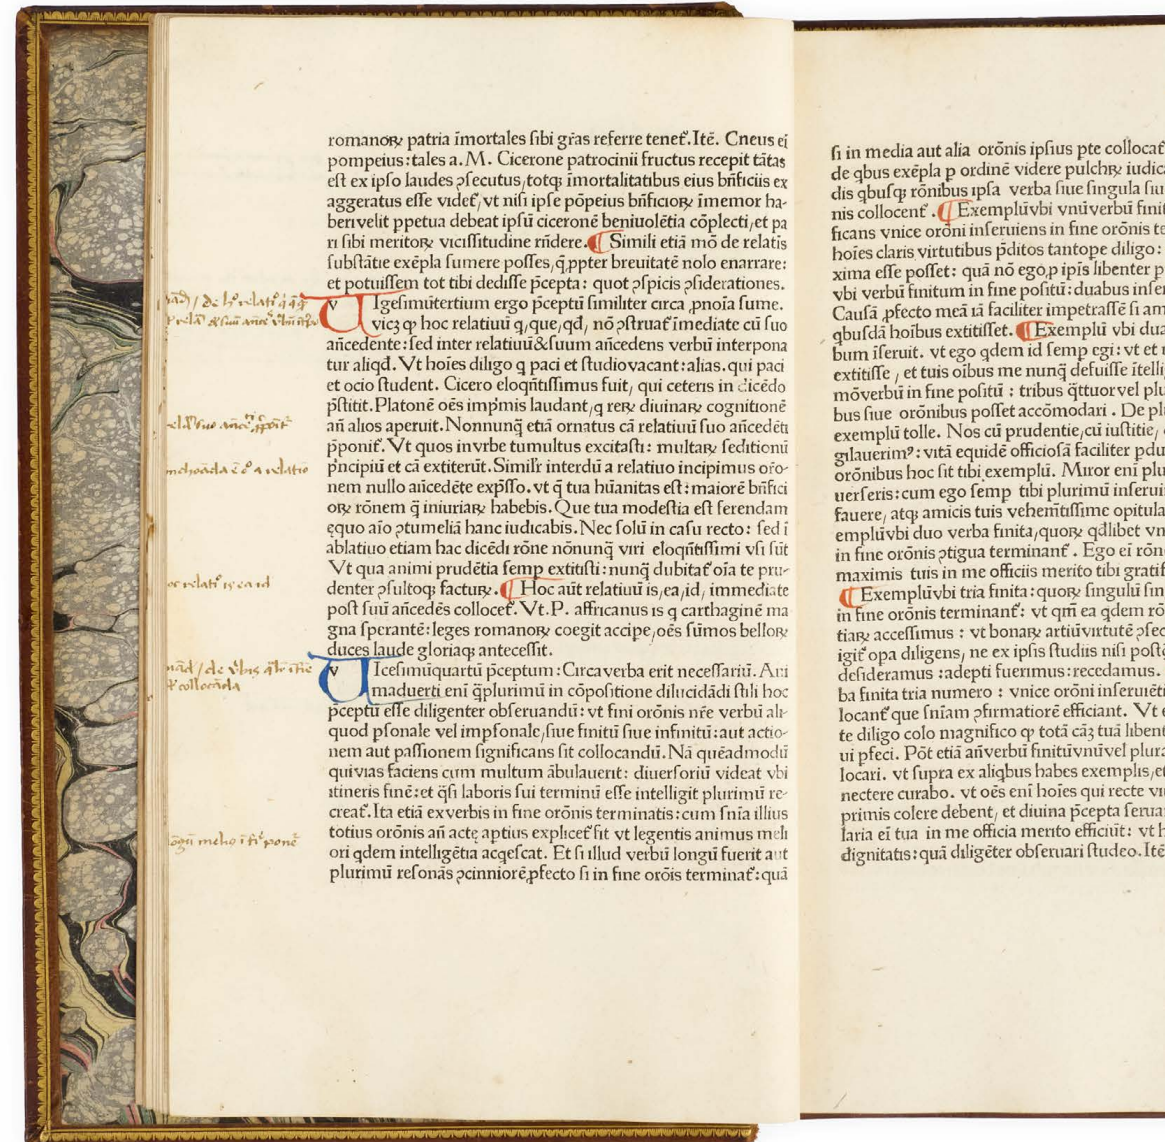 romanoꝝ patria īmortales sibi gr̄as referre tenet̉. Itē. Cneus ei̅
pompeius: tales a. M. Cicerone patrocinii fructus recepit tātas
est ex ipso laudes ꝯsecutus, totqꝫ īmortalitatibus eius bn̄ficiis ex
aggeratus esse videt̉, vt nisi ipse pōpeius bn̄ficioꝝ īmemor ha-
beri velit ppetua debeat ipsū ciceronē beniuolētia cōplecti, et pa
ri sibi meritoꝝ vicissitudine rn̄dere. ¶ Simili etiā mō de relatis
substātie exēpla sumere posses, q̄ ꝓpter breuitatē nolo enarrare:
et potuissem tot tibi dedisse p̄cepta: quot ꝓspicis ꝯsiderationes.
vIgesimūtertium ergo p̄ceptū similiter circa ꝓnoīa sume.
vicꝫ ꝙ hoc relatiuū q, que, qd̄, nō ꝯstruat̉ īmediate cū suo
an̄cedente: sed inter relatiuū & suum an̄cedens verbū interpona
tur aliqd̄. Vt hoīes diligo q paci et studio vacant: alias. qui paci
et ocio student. Cicero eloqn̄tissimus fuit, qui ceteris in dicēdo
p̄stitit. Platonē oēs imp̄mis laudant, q reꝝ diuinaꝝ cognitionē
an̄ alios aperuit. Nonnunq̄ etiā ornatus cā relatiuū suo an̄cedēti
p̄ponit̉. Vt quos in vrbe tumultus excitasti: multaꝝ seditionū
p̄ncipiū et cā extiterūt. Simil̉r interdū a relatiuo incipimus oro̅-
nem nullo an̄cedēte exp̄sso. vt q̄ tua hūanitas est: maiorē bn̄fici
oꝝ rōnem q̄ iniuriaꝝ habebis. Que tua modestia est ferendam
ęquo aīo ꝯtumeliā hanc iudicabis. Nec solū in casu recto: sed ī
ablatiuo etiam hac dicēdi rōne nōnunq̄ viri eloqn̄tissimi vsi sūt
Vt qua animi prudētia semp extitisti: nunq̄ dubitat̉ oīa te pru-
denter ꝓsultoqꝫ facturꝝ. ¶ Hoc aūt relatiuū is, ea, id, immediate
post suū an̄cedēs collocet̉. Vt. P. affricanus is q carthaginē ma
gna sperantē: leges romanoꝝ coegit accipe, oēs sūmos belloꝝ
duces laude gloriaqꝫ antecessit.
vIcesimūquartū p̄ceptum: Circa verba erit necessariū. Ani
maduerti enī q̄plurimū in cōpositione dilucidādi stili hoc
p̄ceptū esse diligenter obseruandū: vt fini orōnis nr̄e verbū ali-
quod psonale vel impsonale, siue finitū siue infinitū: aut actio-
nem aut passionem significans sit collocandū. Nā quēadmodū
qui vias faciens cum multum ābulauerit: diuersoriū videat vbi
itineris finē: et q̄si laboris sui terminū esse intelligit plurimū re-
creat̉. Ita etiā ex verbis in fine orōnis terminatis: cum sn̄ia illius
totius orōnis an̄ actę aptius explicet̉ fit vt legentis animus meli
ori qdem intelligētia acqescat. Et si illud verbū longū fuerit aut
plurimū resonās ꝯcinniorē, ꝓfecto si in fine orōis terminat̉: quā
si in media aut alia orōnis ipsius pte collocat̉
de qbus exēpla p ordinē videre pulchꝝ iudica
dis qbusqꝫ rōnibus ipsa verba siue singula siu
nis collocent̉. ¶ Exemplū vbi vnū verbū finit
ficans vnice orōni inseruiens in fine orōnis te
hoīes claris virtutibus p̄ditos tantope diligo:
xima esse posset: quā nō ego, p ipīs libenter p
vbi verbū finitum in fine positū: duabus inser
Causā ꝓfecto meā iā faciliter impetrassē si am
qbusdā hoībus extitisset. ¶ Exemplū vbi dua
bum īseruit. vt ego qdem id semp egi: vt et
extitisse, et tuis oībus me nunq̄ defuisse ītelli
mō verbū in fine positū: tribus q̄ttuor vel plu
bus siue orōnibus posset accōmodari. De pl
exemplū tolle. Nos cū prudentie, cū iustitie,
gilauerimꝰ: vitā equidē officiosā faciliter pdu
orōnibus hoc sit tibi exemplū. Miror enī plu
uerseris: cum ego semp tibi plurimū inserui
fauere, atqꝫ amicis tuis vehemn̄tissime opitula
emplū vbi duo verba finita, quoꝝ qdlibet vn
in fine orōnis ꝯtigua terminant̉. Ego ei̅ rōn
maximis tuis in me officiis merito tibi gratif
¶ Exemplū vbi tria finita: quoꝝ singulū fin
in fine orōnis terminant̉: vt qm̄ ea qdem rō
tiaꝝ accessimus: vt bonaꝝ artiū virtutē ꝯsec
igit̉ opa diligens, ne ex ipsis studiis nisi postq̄
desideramus: adepti fuerimus: recedamus.
ba finita tria numero: vnice orōni inseruiēti
locant̉ que sn̄iam ꝯfirmatiorē efficiant. Vt e
te diligo colo magnifico ꝙ totā cāꝫ tuā libent
ui pfeci. Pōt etiā an̄ verbū finitū vnū vel plura
locari. vt supra ex aliqbus habes exemplis, et
nectere curabo. vt oēs enī hoīes qui recte viu
primis colere debent, et diuina p̄cepta serua
laria ei̅ tua in me officia merito efficiūt: vt h
dignitatis: quā diligēter obseruari studeo. Itē